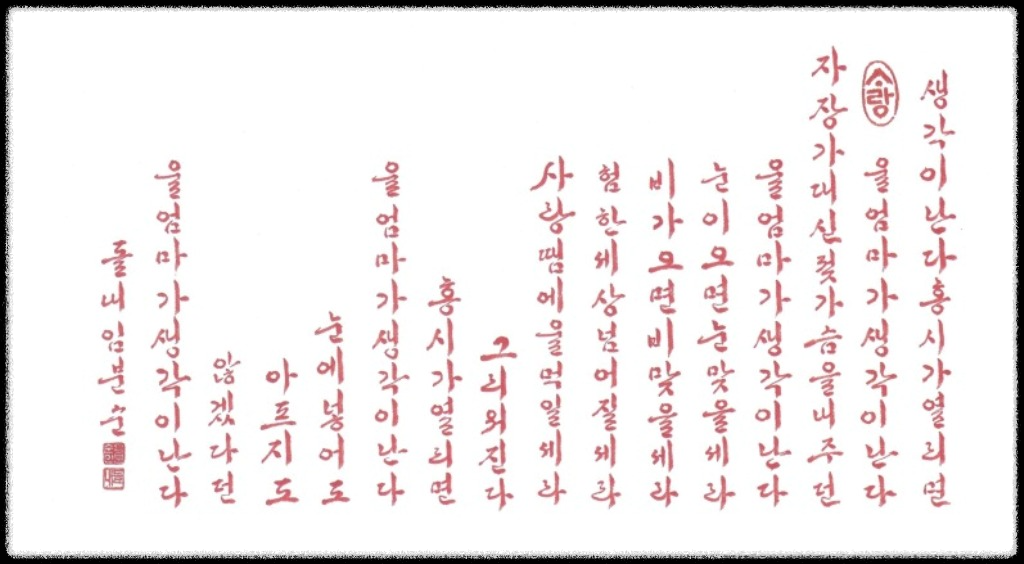 생각이난다홍시가열리면
ᄉᆞ랑
울엄마가생각이난다
자장가대신젖가슴을내주던
울엄마가생각이난다
눈이오면눈맞을세라
비가오면비맞을세라
험한세상넘어질세라
사랑땜에울먹일세라
그리워진다
홍시가열리면
울엄마가생각이난다
눈에넣어도
아프지도
않겠다던
울엄마가생각이난다
돌내임분순